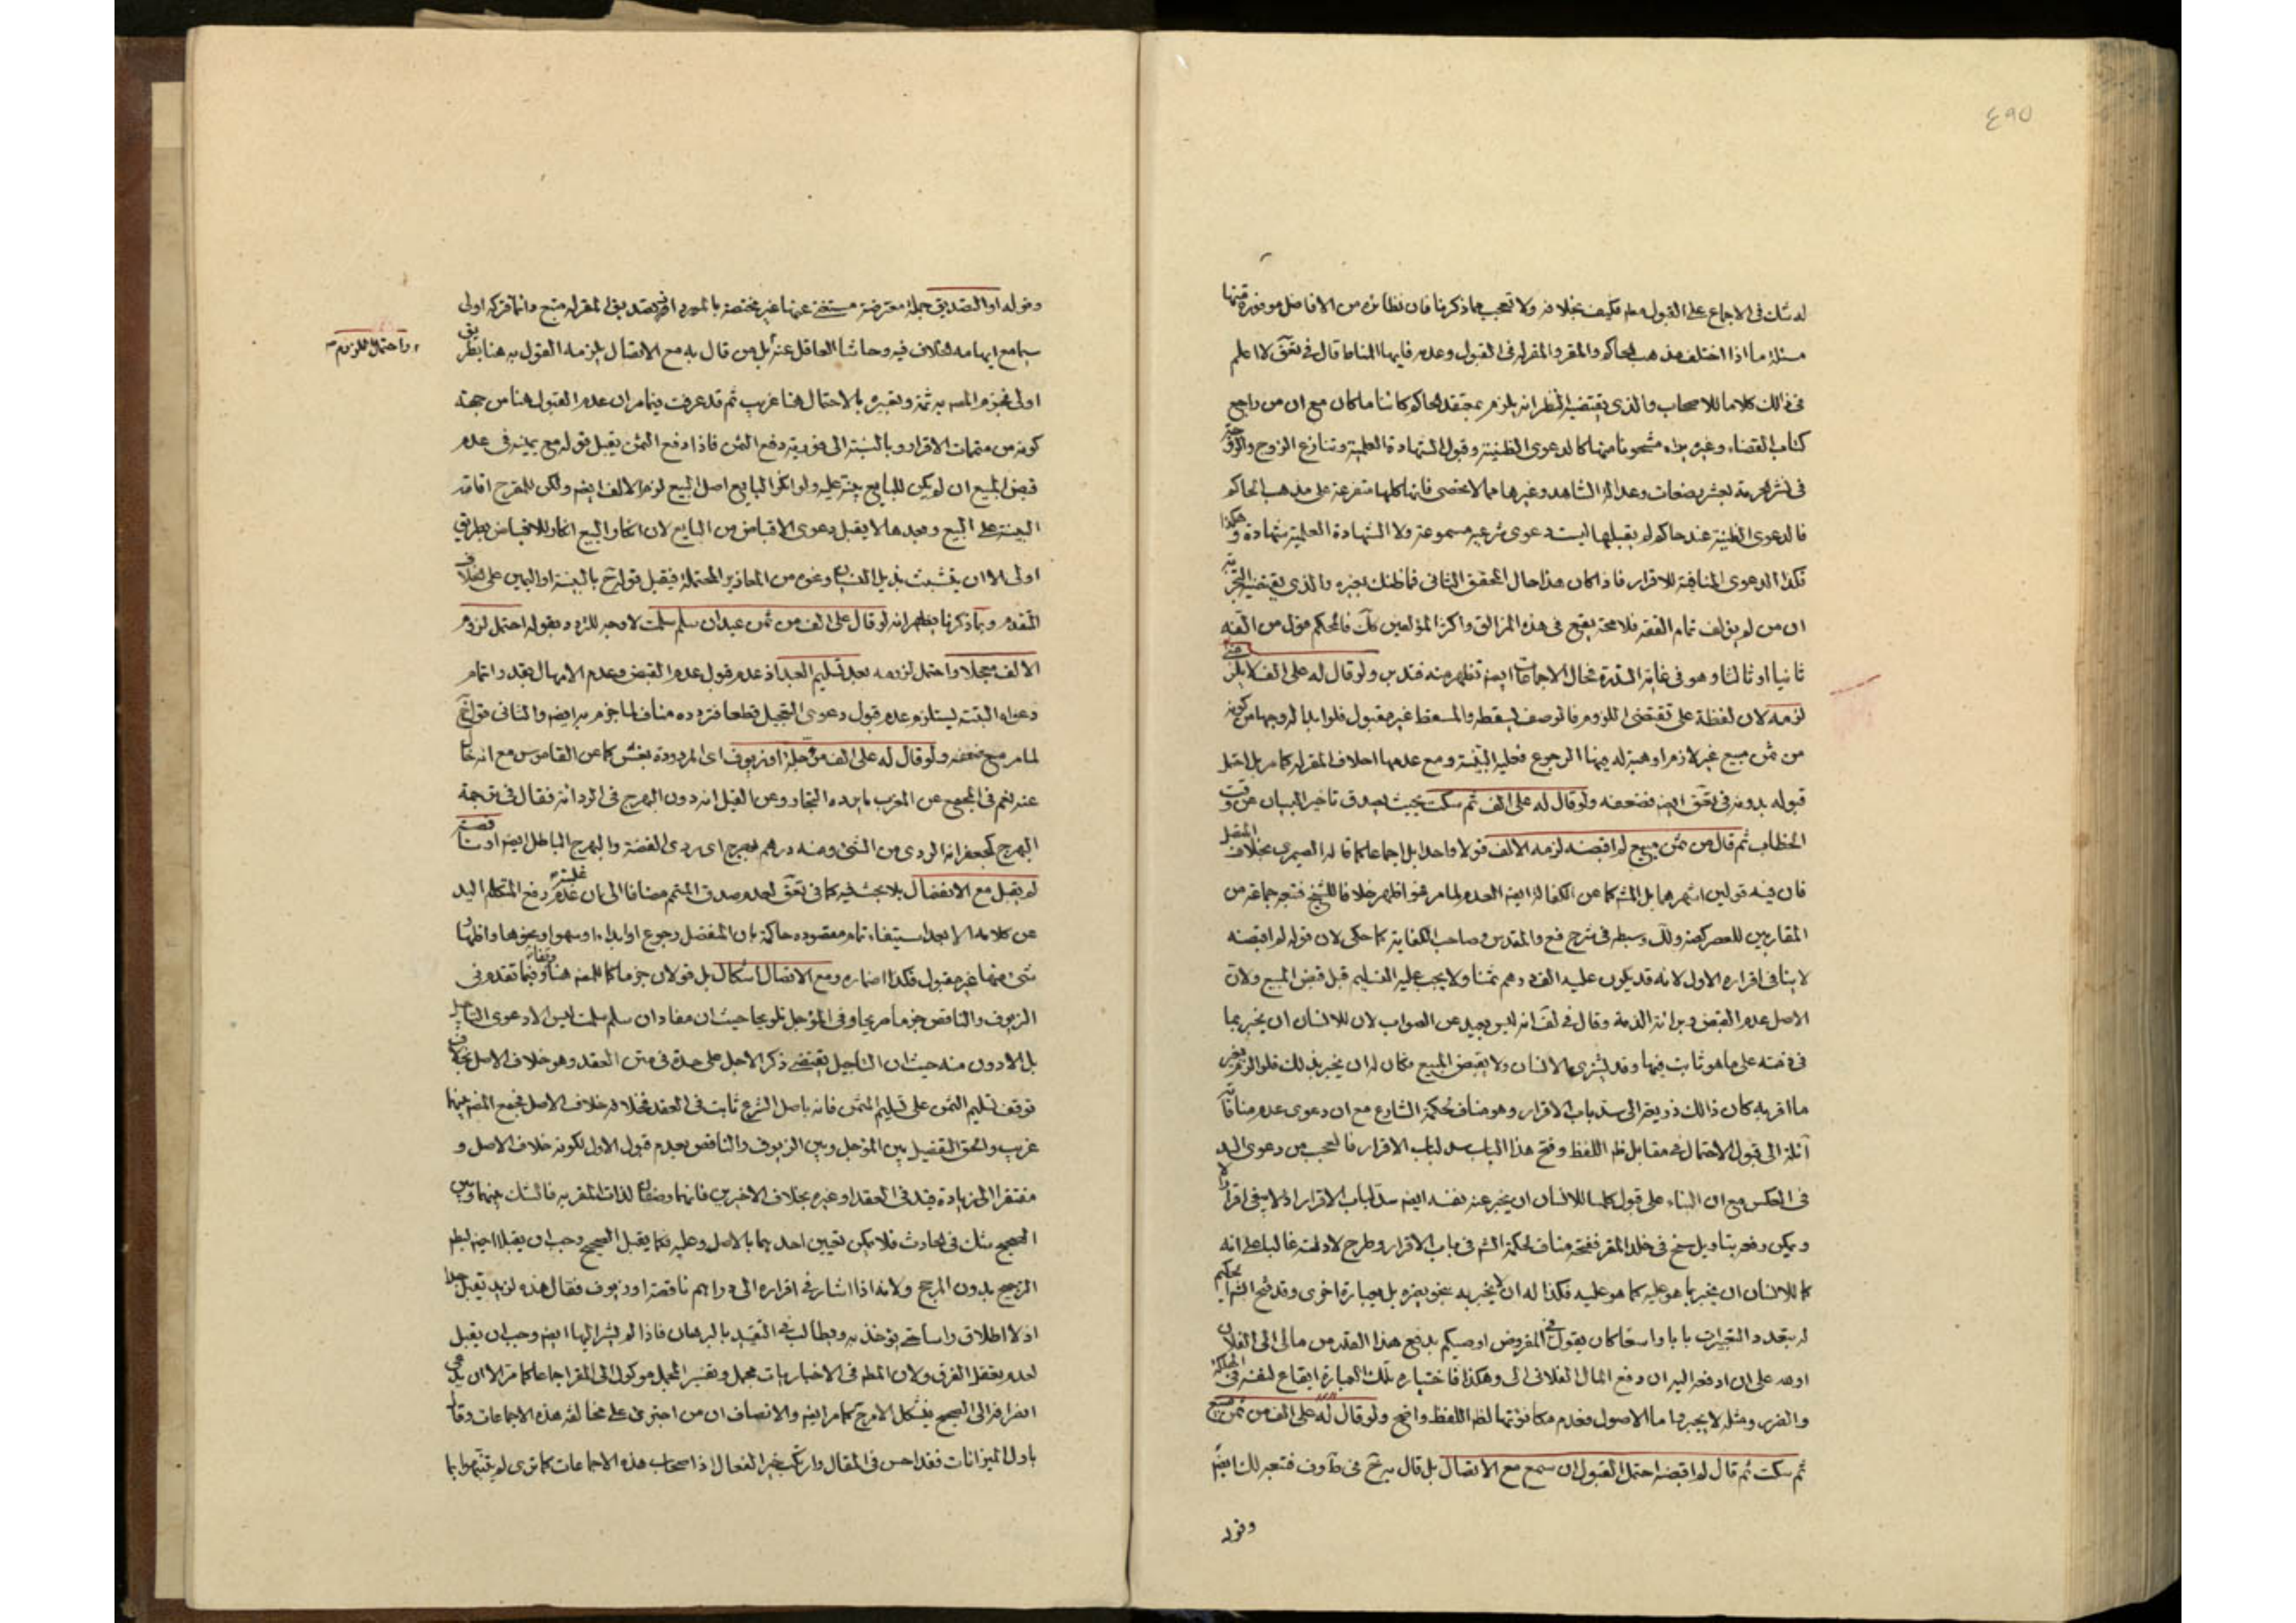 ٤٩٥
له شك فى الاجماع على القبول معه فكيف بخلافه ولا تعجب مما ذكرنا فان نظائره من الافاضل موفورة فمنها
مسئلة ما اذا اختلف مذهب الحاكم والمقر والمقر له فى القبول وعدمه فايهما المناط قال فى تعق لا اعلم
فى ذلك كلاما للاصحاب والذى يقتضيه النظر انه يلزم بمعتقد الحاكم كائنا ما كان مع ان من راجع
كتاب القضاء وغيره يراه مشحونا منها كالدعوى الظنية وقبول الشهادة العلمية وتنازع الزوج والزوجة
فى نشر الحرمة بعشر رضعات وعدالة الشاهد وغيرها مما لا يحصى فانها كلها متفرعة على مذهب الحاكم
فالدعوى الظنية عند حاكم لم يقبلها ليست دعوى شرعية مسموعة ولا الشهادة العلمية شهادة وهكذا
فكذا الدعوى المنافية للاقرار فاذا كان هذا حال المحقق الثانى فما ظنك بغيره والذى يقتضيه التجربة
ان من لم يؤلف تمام الفقه فلا محة يقع فى هذه المزالق واكثر المؤلفين كك فالمحكم مؤل من الفه
ثانيا او ثالثا وهو فى غاية الندرة فحال الاجماعات ايضا تظهر منه فتدبر ولو قال له على الف لا يلزمنى
لزمه لان لفظة على تقتضى اللزوم فالوصف يسقطه والمسقط غير مقبول فلو ابدا له وجها من كونه
من ثمن مبيع غير لازم او هبة له فيها الرجوع فعليه البينة ومع عدمها احلاف المقر له كما مر بل احتمل
قبوله بدونه فى تعق ايضا فضعفه ولو قال له على الف ثم سكت بحيث يصدق تاخير البيان عن وقت
الخطاب ثم قال من ثمن مبيع لم اقبضه لزمه الالف قولا واحدا بل اجماعا كما قاله الصيمرى بخلاف المتصل
فان فيه قولين اشهرهما بل المشهور كما عن الكفاية ايضا العدم لما مر فهو اظهر خلافا للشيخ فتبعه جماعة من
المقاربين للعصر كيضه ولك وسبطه فى شرح فع والمقدس وصاحب الكفاية كما حكى لان قوله لم اقبضه
لا ينافى اقراره الاول لانه قد يكون عليه الف درهم ثمنا ولا يجب عليه التسليم قبل قبض المبيع ولان
الاصل عدم القبض وبرائة الذمة وقال فى لف انه ليس ببعيد عن الصواب لان للانسان ان يخبر بما
فى ذمته على ما هو ثابت فيها وقد يشترى الانسان ولا يقبض المبيع فكان له ان يخبر بذلك فلو الزم بغير
ما اقر به كان ذلك ذريعة الى سد باب الاقرار وهو مناف لحكمة الشارع مع ان دعوى عدم منافاته
آئلة الى قبول الاحتمال فى مقابل ظه اللفظ وفتح هذا الباب سد لباب الاقرار فالعجب من دعوى السد
فى العكس مع ان البناء على قبول كلما للانسان ان يخبر عنه نفسه ايضا سد لباب الاقرار اذ لا يبقى اقرار الا
ويمكن دفعه بتاويل سنح فى خلد المقر ففتحه مناف لحكمة الشه فى باب الاقرار وطرح لادلته غالبا على انه
كما للانسان ان يخبر بما هو عليه كما هو عليه فكذا له ان لا يخبر به بنحو يضره بل بعبارة اخرى وقد فتح الشرع بحكم
له بتعدد التعبيرات بابا واسعا كان يقول فى المفروض اوصيكم بدفع هذا القدر من مالى الى الفلان
او هه على ان ادفع اليه ان دفع المال الفلانى الى وهكذا فاختياره تلك العبارة ايقاع لنفسه فى المهلكة
والضرر ومثله لا يجبر واما الاصول فعدم مكافؤتها لظه اللفظ واضح ولو قال له على الف من ثمن مبيع
ثم سكت ثم قال لم اقبضه احتمل القبول ان سمع مع الاتصال بل قال به تخ فى ف فتعبير لك ايضا
وقوله
وقوله او التصديق جملة معترضة مستغنى عنها غير مختصة بالمورد اذ تصديق المقر له متبع دائما فتركه اولى
سيما مع ايهامه لخلاف فيه وحاشا العاقل عنه بل من قال به مع الاتصال يلزمه القول به هنا بطريق
واحتمل اللزوم
اولى فجزم المصه به ثمة وتعبيره بالاحتمال هنا غريب ثم قد عرفت فيما مر ان عدم القبول هنا من جهة
كونه من متممات الاقرار وبالنسبة الى فورية دفع الثمن فاذا دفع الثمن يقبل قوله مع يمينه فى عدم
قبض المبيع ان لم يكن للبايع بينة عليه ولو انكر البايع اصل البيع لزم الالف ايضا ولكن للمقر ح اقامة
البينة على البيع وبعدها لا يقبل دعوى الاقباض من البايع لان انكار البيع انكار للاقباض بطريق
اولى الا ان يتشبث بذيل النسيان ونحوه من المعاذير المحتملة فيقبل قوله تخ بالبينة او اليمين على الخلاف
المقدم وبما ذكرنا يظهر انه لو قال على الف من ثمن عبد ان سلم سلمت لا وجه للتردد بقوله احتمل لزوم
الالف معجلا واحتمل لزومه بعد تسليم العبد اذ عدم قبول عدم القبض وعدم الامهال بعد واتمام
دعواه البتة يستلزم عدم قبول دعوى التعجيل قطعا فتردده مناف لما جزم به ايضا والثانى قوله تخ
لما مر مع ضعفه ولو قال له على الف مؤجلة او زيوف اى المردودة بغش كما عن القاموس مع انه خال
عنه نعم فى المجمع عن المغرب ما يرده التجار وعن القيل انه دون البهرج فى الردائة فقال فى ترجمة
البهرج كجعفر انه الردى من الشئ ومنه درهم بهرج اى ردى الفضة والبهرج الباطل ايضا او ناقصة
لم يقبل مع الانفصال بلا بحث فيه كما فى تعق لعدم صدق المتمم مضافا الى ان غلبة عدم رفع المتكلم اليد
عن كلامه الا بعد استيفاء تمام مقصوده حاكمة بان المنفصل رجوع او ابداء او سهو او نحوها واظهار
شئ منها غير مقبول فكذا اضماره ومع الاتصال اشكال بل قولان جزما كما للمصه هنا وفيما تقدم فى
الزيوف والناقص جزما صريحا وفى المؤجل تلويحا حيث ان مفاد ان سلم سلمت ليس الا دعوى التاجيل
بل الادون منه حيث ان التاجيل يقتضى ذكر الاجل على حدة فى متن العقد وهو خلاف الاصل بخلاف
توقف تسليم الثمن على تسليم المثمن فانه باصل الشرع ثابت فى العقد فخلافه خلاف الاصل فجمع المصه بينهما
غريب والحق التفصيل بين المؤجل وبين الزيوف والناقص بعدم قبول الاول لكونه خلاف الاصل و
مفتقرا الى زيادة قيد فى العقد او غيره بخلاف الاخيرين فانهما وصفان لذات المقر به فالشك بينهما وبين
الصحيح شك فى الحادث فلا يمكن تعيين احدهما بالاصل وعليه فكما يقبل الصحيح وجب ان يقبلا ايضا لبطلان
الترجيح بدون المرجح ولانه اذا اشار فى اقراره الى دراهم ناقصة او زيوف فقال هذه لزيد تقبل جدا
اذ لا اطلاق راسا حتى يؤخذ به ويطالب فى التقييد بالبرهان فاذا لم يشر اليها ايضا وجب ان يقبل
لعدم تعقل الفرق ولان المطه فى الاخبار بات مجمل وتفسير المجمل موكول الى المقر اجماعا كما مر الا ان يدعى
انصرافه الى الصحيح فيشكل الامر ح كما مر ايضا والانصاف ان من اجترئ على مخالفة هذه الاجماعات وقال
باول الميزانات فقد احسن فى المقال وارتكب خير الفعال اذ اصحاب هذه الاجماعات كما ترى لم يتنبهوا بما